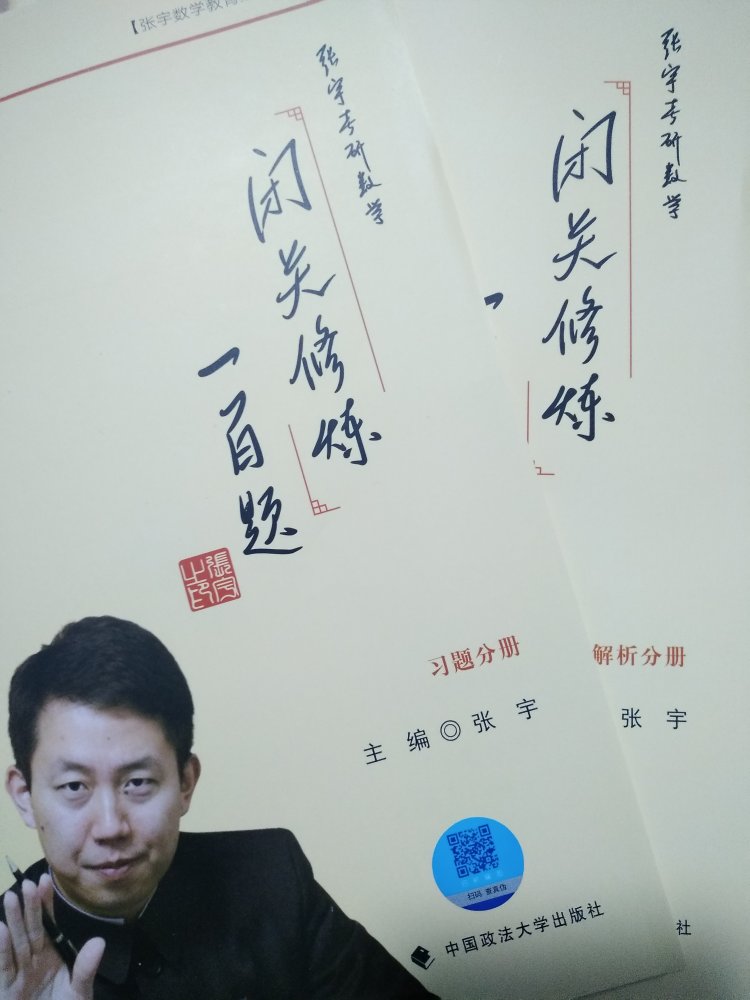 【张宇数学教育
张宇考研数学
闭关修炼
一百题
張宇之印
习题分册
主编◎张宇
扫码 查真伪
中国政法大学出版社
张宇考研数学
闭关修炼
一
解析分册
张宇
社